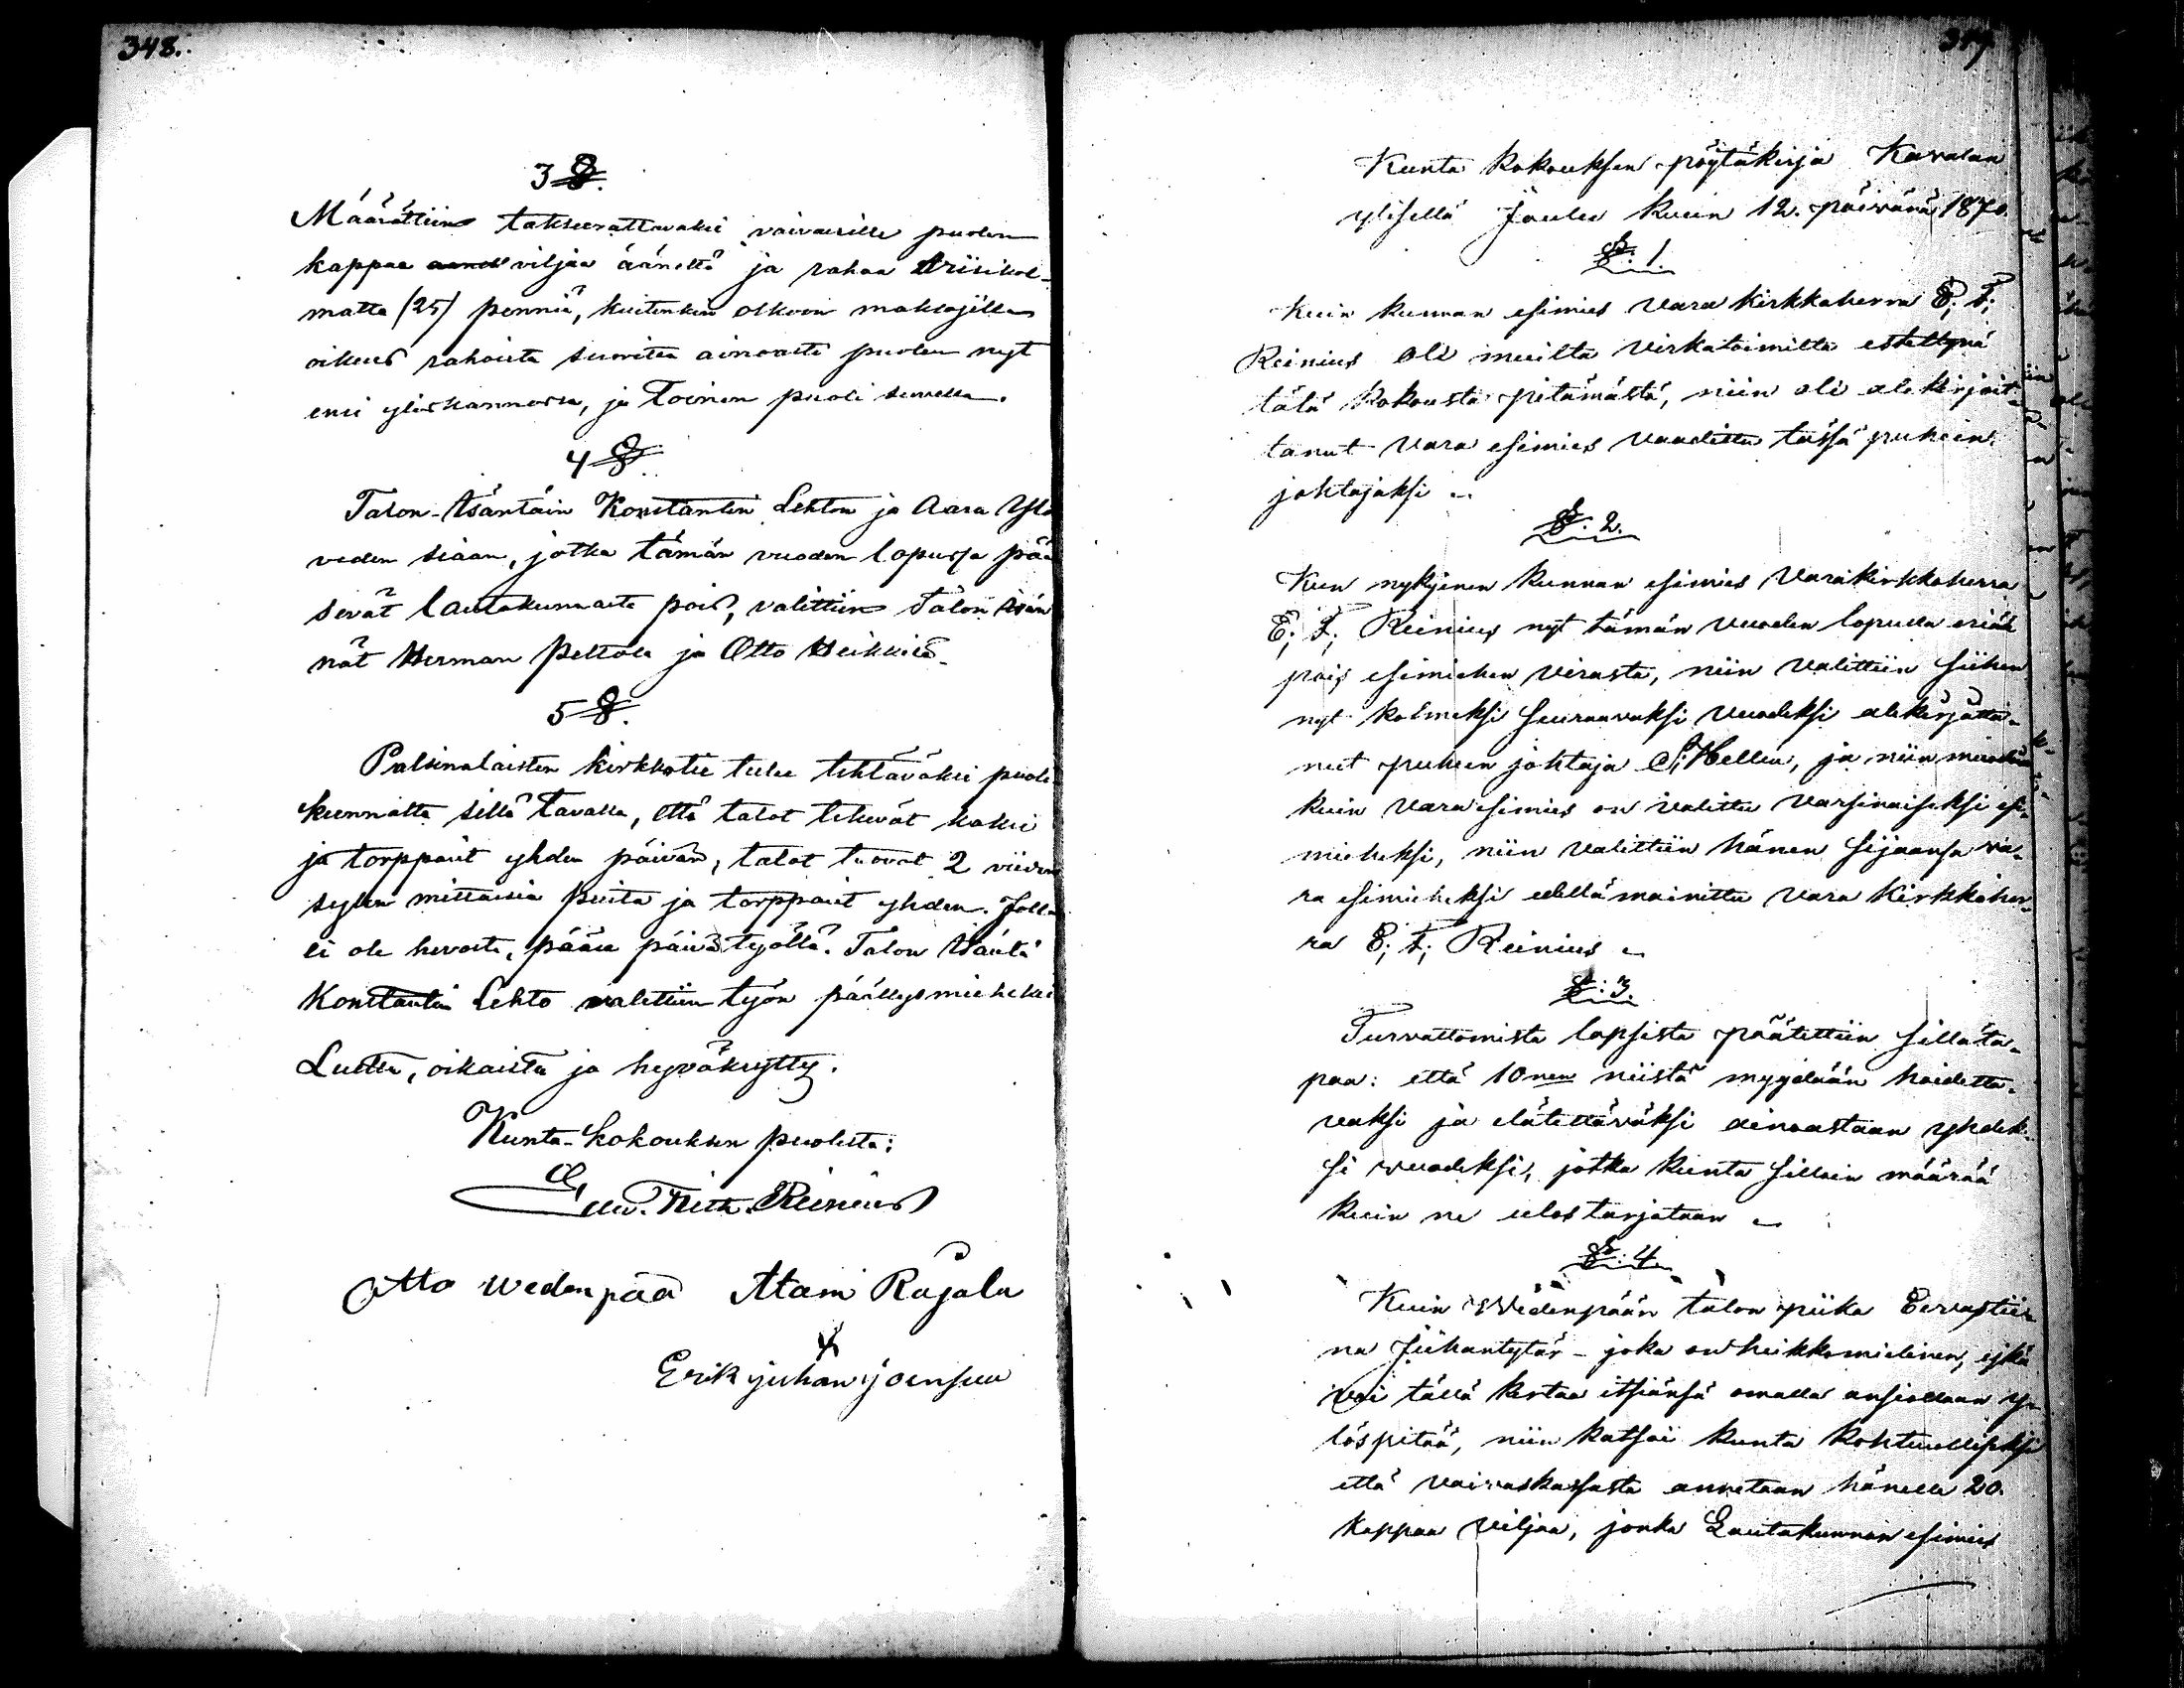 348.
3 §.
Määrättiin takseerattavaksi vaivaisille puolen
kappaa viljaa äänettä ja rahaa Wiisikol-
matta (25) penniä, kuitenkin olkoon maksajilla
oikeus rahoista suorittaa ainoasti puolen nyt
ensi yloskannossa, ja Toinen puoli
4 §.
Talon-Isäntäin Konstantin Lehton ja Aara Ylä
veden siaan, jotka tämän vuoden lopussa pää
sevät lautakunnasta pois, valittiin Talon Isän
nät Herman Peltola ja Otto Heikkilä.
5 §.
Palsinalaisten kirkkotie tulee tehtäväksi puoli
kunnalta sillä tavalla, että talot tekevät kaksi
ja torpparit yhden päivän, talot tuovat 2 viiden
sylen mittaisia puita ja torpparit yhden. Jolla
ei ole hevosta, pääsee päivätyöllä. Talon Isäntä
Konstantin Lehto valittiin työn päällysmieheksi
Luettu, oikaistu ja hyväksytty.
Kunta-kokouksen puolesta:
Reinius
Otto Wedenpää Mami Rajala
Erik juhan joensuu
Kunta kokouksen pöytäkirja Karvalan
ylisellä Joulu kuun 12. päivänä 1870.
§. 1.
Kuin kunnan esimies Vara kirkkoherra E; F;
Reinius oli muilta virkatoimilta estettynä
tätä kokousta pitämästä, niin oli alekirjoit-
tanut vara esimies vaadittu tässä puheen
johtajaksi
§. 2.
Kun nykyinen kunnan esimies Varakirkkoherra
E; F; Reinius nyt tämän vuoden lopulla eriää
pois esimiehen virasta, niin valittiin siihen
nyt kolmeksi seuraavaksi vuodeksi alekirjoitta-
nut puheen johtaja Hellen, ja niin muodoin
kuin vara esimies on valittu varsinaiseksi esi-
mieheksi, niin valittiin hänen sijaansa va-
ra esimieheksi edellä mainittu vara kirkkoher-
ra E; F; Reinius
§. 3.
Turvattomista lapsista päätettiin sillä ta-
paa: että 10nen niistä myydään hoidetta-
vaksi ja elätettäväksi ainoastaan yhdek-
si vuodeksi, jotka kunta silloin määrää
kuin ne ulos tarjotaan
§. 4.
Kuin Wedenpään talon piika Eevastii-
na Juhantytär - joka on heikkomielinen, eikä
voi tällä kertaa itsiänsä omalla ansiollaan y-
löspitää, niin katsoi kunta kohtuulliseksi
että vaivaskassasta annetaan hänelle 20.
kappaa viljaa, jonka Lautakunnan esimies